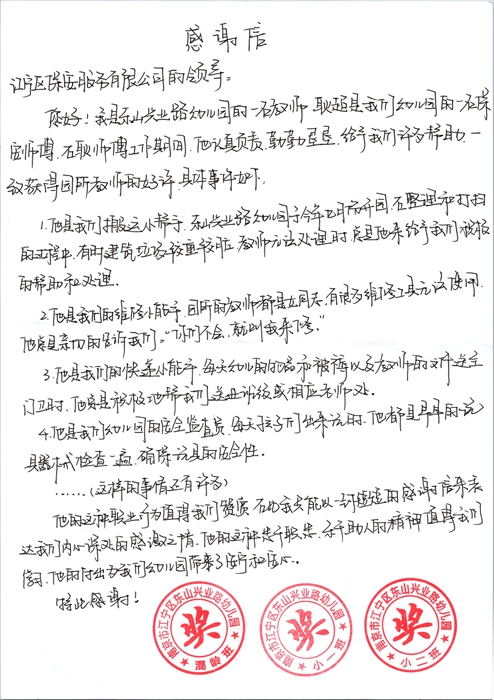 感谢信
江宁区保安服务有限公司的领导。
您好！我是东山兴业路幼儿园的一名教师，耿超是我们幼儿园的一名保
安师傅，在耿师傅工作期间，他认真负责，勤勤恳恳，给予我们许多帮助，一
致获得园所教师的好评，具体事评如下：
1.他是我们搬运小帮手，东山兴业路幼儿园于今年 开园，在整理和打扫
的过程中，有时建筑垃圾较重较脏，教师无法处理时，总是他来给予我们积极
的帮助和处理。
2.他是我们的维修小能手，园所的教师都是女同志，有很多维修工具无法使用，
他总是亲切的告诉我们。“你们不会，就叫我来修。”
3.他是我们的快递小能手，每天幼儿的物品和被褥以及教师的文件送至
门卫时，他总是积极地帮我们送进班级或相应老师处。
4.他是我们幼儿园的安全监查员，每天孩子们 来 时，他都是早早的 玩
具器械检查一遍，确保玩具的安全性。
……（这样的事情还有许多）
他的这种职业行为值得我们赞赏，在此我只能以一封 的感谢信来表
达我们内心深处的感激之情，他的这种忠于职守、乐于助人的精神值得我们
学习，他的付出为我们幼儿园带来了安宁和安心。
特此感谢！
南京市江宁区东山兴业路幼儿园
奖
南京市江宁区东山兴业路幼儿园
奖
小一班
南京市江宁区东山兴业路幼儿园
奖
小二班